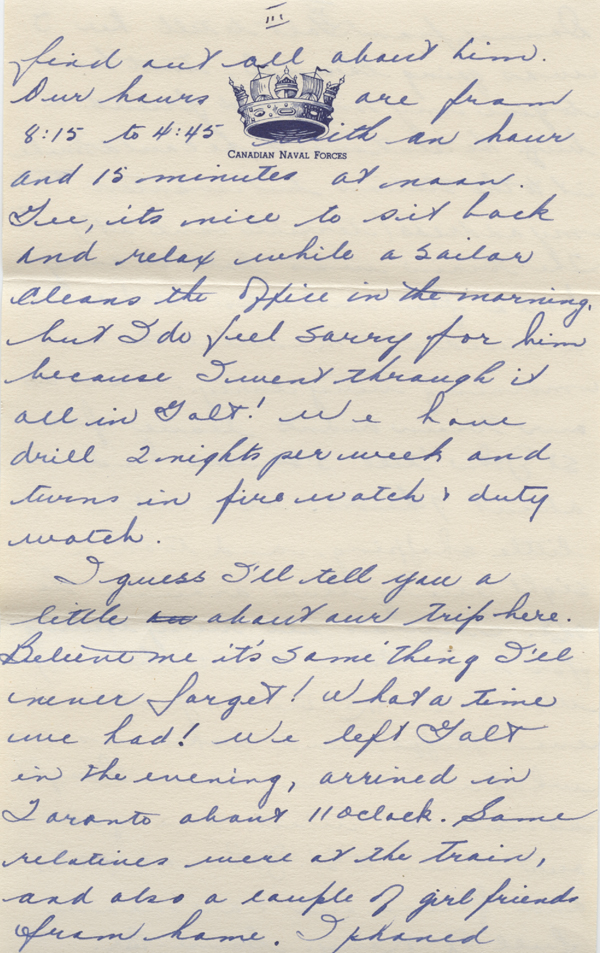 III
find out all about him.
Our hours are from
8:15 to 4:45 with an hour
CANADIAN NAVAL FORCES
and 15 minutes at noon.
Gee, its nice to sit back
and relax while a sailor
cleans the office in the morning,
but I do feel sorry for him
because I went through it
all in Galt! We have
drill 2 nights per week and
turns in fire watch & duty
watch.
I guess I'll tell you a
little an about our trip here.
Believe me it's some thing I'll
never forget! What a time
we had! We left Galt
in the evening, arrived in
Toronto about 11 oclock. Some
relatives were at the train,
and also a couple of girl friends
from home. I phoned